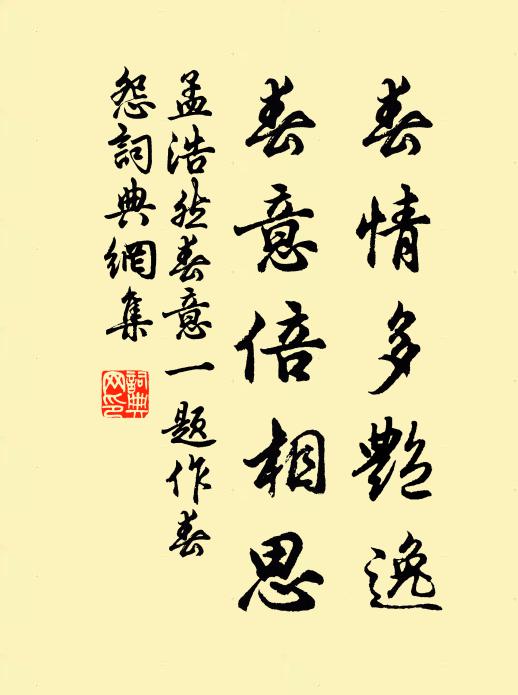 春情多艷逸
春意倍相思
孟浩然春意一題作春
怨詞典網集
詞典
网印